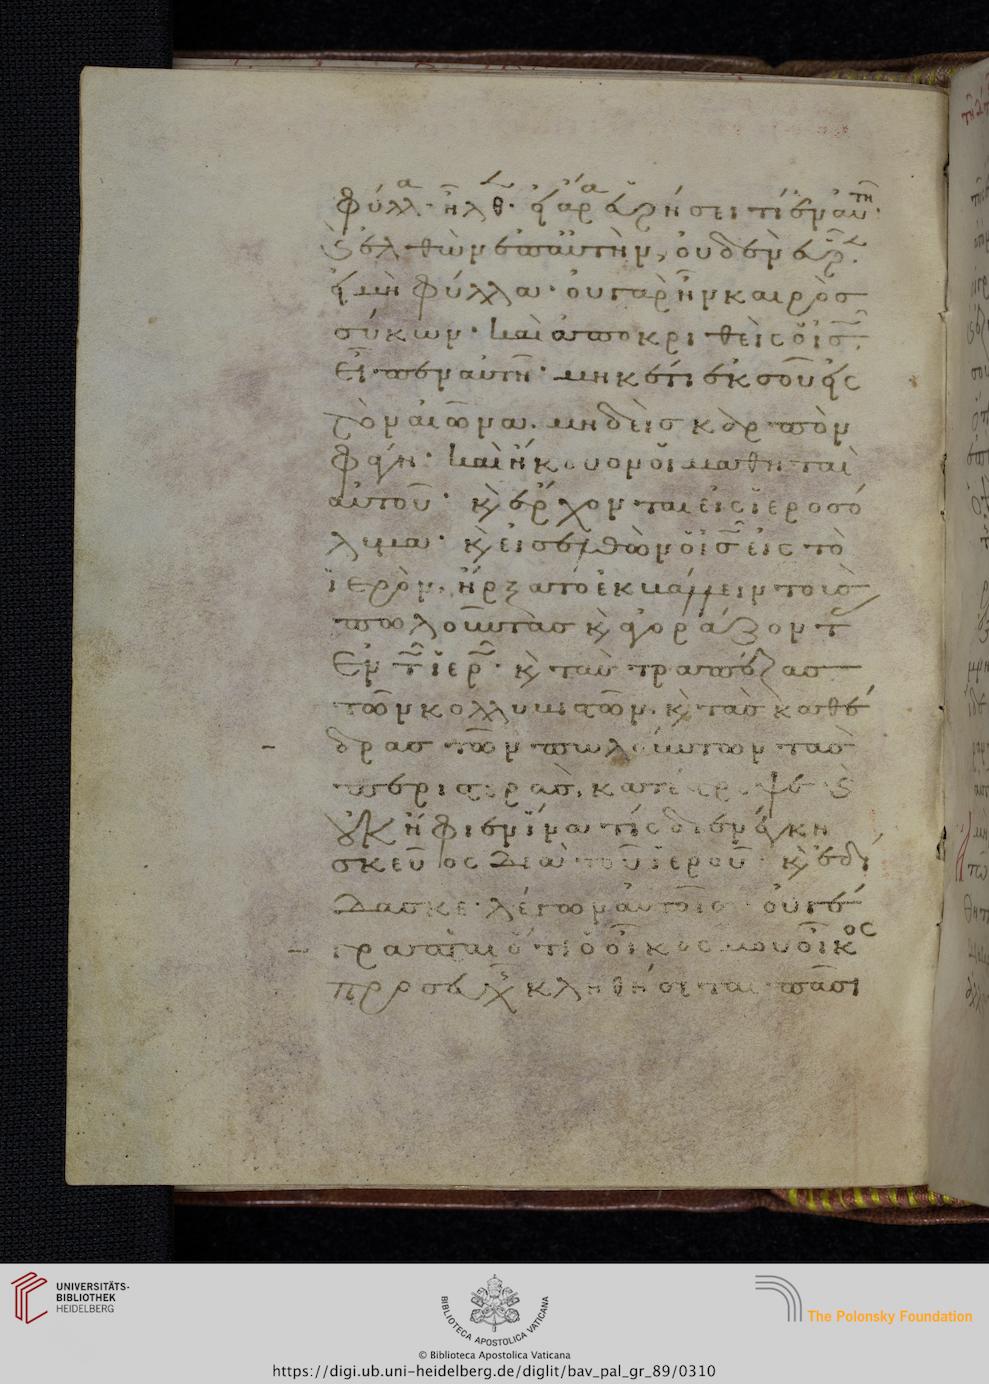 φύλλα· ἦλθεν· εἰ ἄρα εὑρήσει τί ἐν αὐτῆ·
καὶ ἐλθὼν ἐπ αὐτὴν, οὐδὲν εὗρεν·
εἰ μὴ φύλλα· οὐ γὰρ ἦν καιρὸσ
σύκων· καὶ ἀποκριθεὶς ὁ ἰς
εἶπεν αὐτῆ· μηκέτι ἐκ σοῦ εἰς
τὸν αἰῶνα. μηδεὶσ καρπὸν
φάγη· καὶ ἤκουον οἱ μαθηταὶ
αὐτοῦ· κ ἔρχονται εἰς ἱεροσό
λυμα· κ εἰσελθὼν ὁ ἰς εἰς τὸ
ἱερὸν. ἤρξατο ἐκβάλλειν τοὺσ
πωλοῦντασ κ ἀγοράζοντ
ἐν τῶ ἱερῶ· κ τὰσ τραπέζασ
τῶν κολλυβιστῶν. κ τὰσ καθέ
δρασ τῶν πωλούντων τὰσ
περιστερὰσ, κατέστρεψε· καὶ
οὐκ ἤφιεν ἵνα τίς διενέγκη
σκεῦος διὰ τοῦ ἱεροῦ· κ ἐδί
δασκε· λέγων αὐτοῖσ· οὐ γέ
γραπται ὅτι ὁ οἶκος μου οἶκος
προσευχῆς κληθήσεται πᾶσι
UNIVERSITÄTS-
BIBLIOTHEK
HEIDELBERG
BIBLIOTECA APOSTOLICA VATICANA
The Polonsky Foundation
© Biblioteca Apostolica Vaticana
https://digi.ub.uni-heidelberg.de/diglit/bav_pal_gr_89/0310